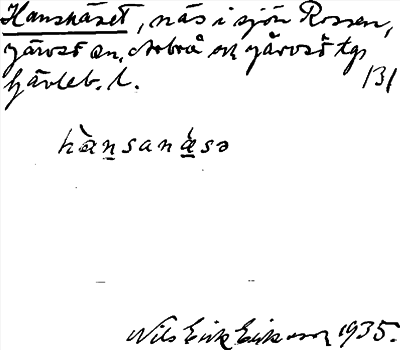 Hansnäset, näs i sjön Rossen,
Järvsö sn, Arbrå och Järvsö tg
Gävleb. l. 131
hànsanäsə
Nils Erik Eriksson 1935.